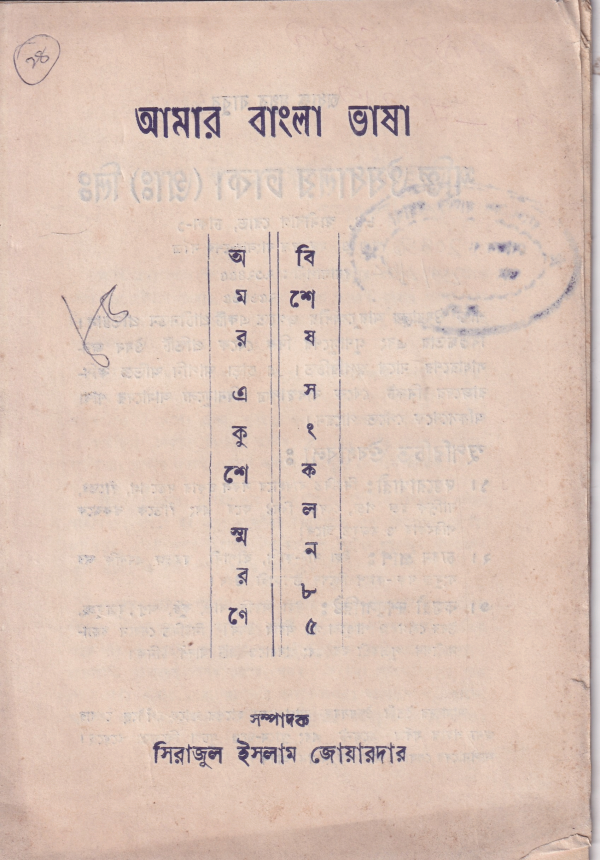 ২৪
আমার বাংলা ভাষা
অমর একুশে স্মরণে
বিশেষ সংকলন ৮৫
সম্পাদক
সিরাজুল ইসলাম জোয়ারদার